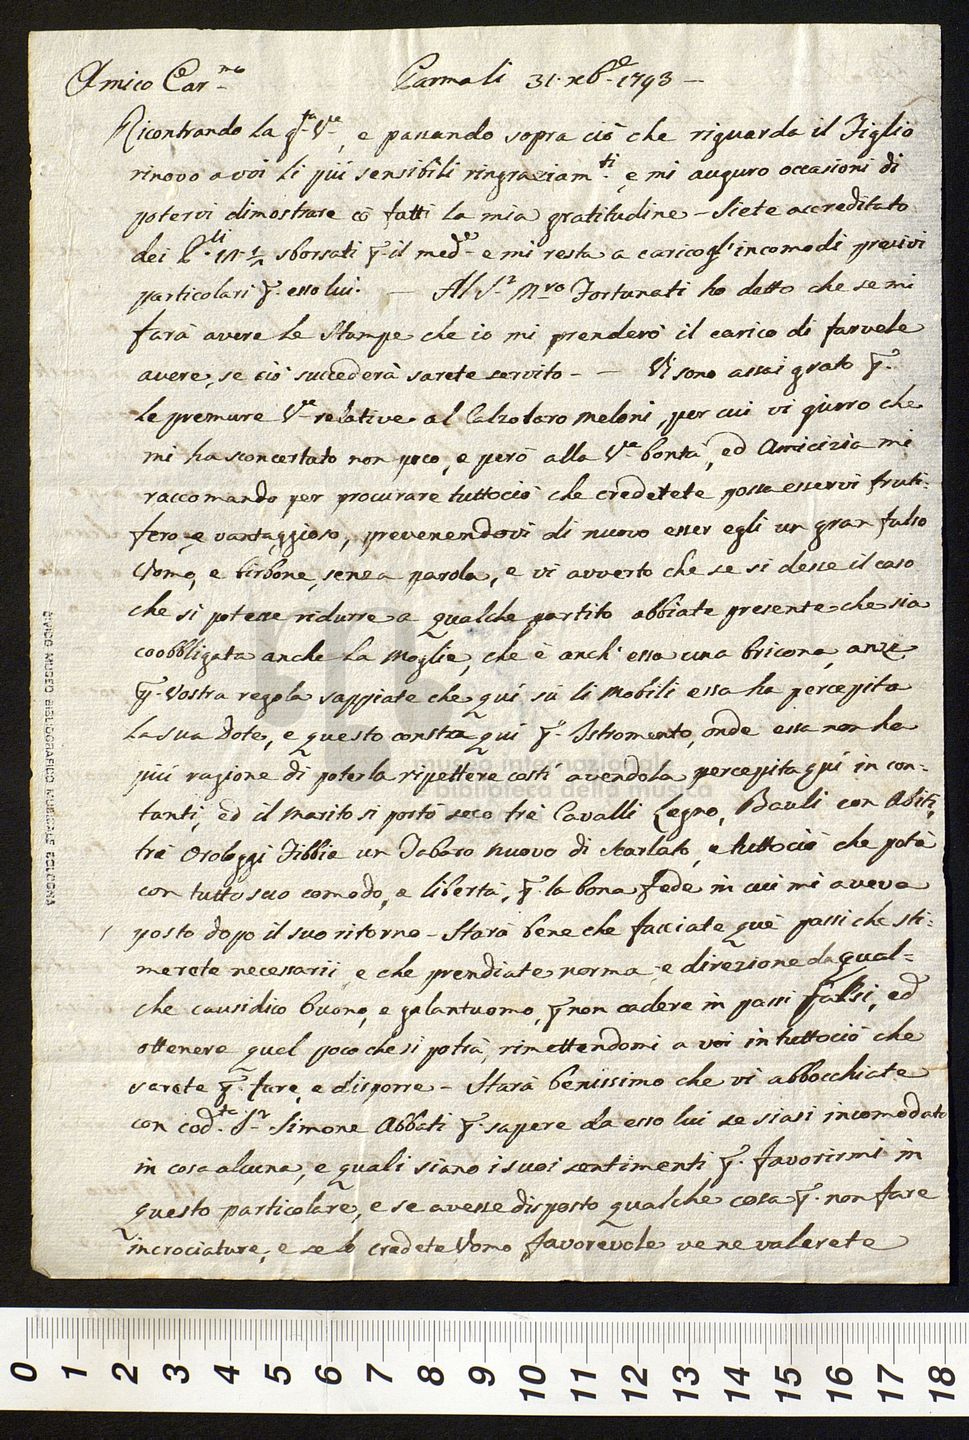 Amico Car.mo Parma li 31. xb.e 1793 —
Ricontrando la p.ta V.ra, e passando sopra ciò che riguarda il Figlio
rinovo a voi li più sensibili ringraziam.ti, e mi auguro occasioni di
potervi dimostrare cō fatti la mia gratitudine – Siete accreditato
dei sborsati p. il med.e e mi resta a carico gl'incomodi presivi
particolari p. esso lui. — Al S.r M.ro Fortunati ho detto che se mi
farà avere le Stampe che io mi prenderò il carico di farvele
avere, se ciò succederà sarete servito – — Vi sono assai grato p.
le premure V.re relative al Calzolaro Meloni, per cui vi giurro che
mi ha sconcertato non poco, e però alla V.ra bontà, ed Amicizia mi
raccomando per procurare tuttociò che credetete possa esservi fruti-
fero, e vantaggioso, prevenendovi di nuovo esser egli un gran falso
Uomo, e birbone, senza parola, e vi avverto che se si desse il caso
che si potesse ridurre a qualche partito abbiate presente che sia
coobbligata anche la Moglie, che è anch'essa una bricona, anzi
p. Vostra regola sappiate che quì sù li Mobili essa ha percepita
la sua Dote, e questo consta quì p. Istromento, onde essa non ha
più ragione di poterla ripettere costì avendola percepita quì in con-
tanti, ed il Marito si portò seco trè Cavalli Legno, Bauli con Abiti,
trè Orologgi Fibbie un Tabaro nuovo di Scarlato, e tuttociò che potè
con tutto suo comodo, e libertà, p. la bona fede in cui mi aveva
posto dopo il suo ritorno – Starà bene che facciate què passi che sti-
merete necessarii, e che prendiate norma, e direzione da qual-
che causidico buono, e galantuomo, p. non cadere in passi falsi, ed
ottenere quel poco che si potrà, rimettendomi a voi in tuttociò che
sarete p. fare, e disporre – Starà benissimo che vi abbocchiate
con cod.to S.r Simone Abbati p. sapere da esso lui se siasi incomodato
in cosa alcuna, e quali siano i suoi sentimenti p. favorirmi in
questo particolare, e se avesse disposto qualche cosa p. non fare
incrociature, e se lo credete Uomo favorevole ve ne valerete
CIVICO MUSEO BIBLIOGRAFICO MUSICALE BOLOGNA
museo internazionale
e biblioteca della musica
0 1 2 3 4 5 6 7 8 9 10 11 12 13 14 15 16 17 18